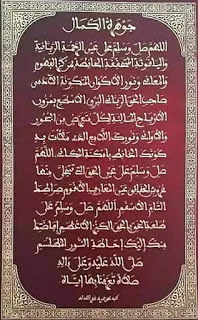 جوهرة الكمال
اللهم صل وسلم على عين الرحمة الربانية
والياقوتة المتحققة الحائطة بمركز الفهوم
والمعاني ونور الأكوان المتكونة الآدمي
صاحب الحق الرباني البرق الأسطع بمزون
الأرباح المالئة لكل متعرض من البحور
والأواني ونورك اللامع الذي ملأت به
كونك الحائط بأمكنة المكاني اللهم
صل وسلم على عين الحق التي تتجلى منها
عروش الحقائق عين المعارف الأقوم صراطك
التام الأسقم اللهم صل وسلم على
طلعة الحق بالحق الكنز الأعظم إفاضتك
منك إليك إحاطة النور المطلسم
صلى الله عليه وعلى آله
صلاة تعرفنا بها إياه